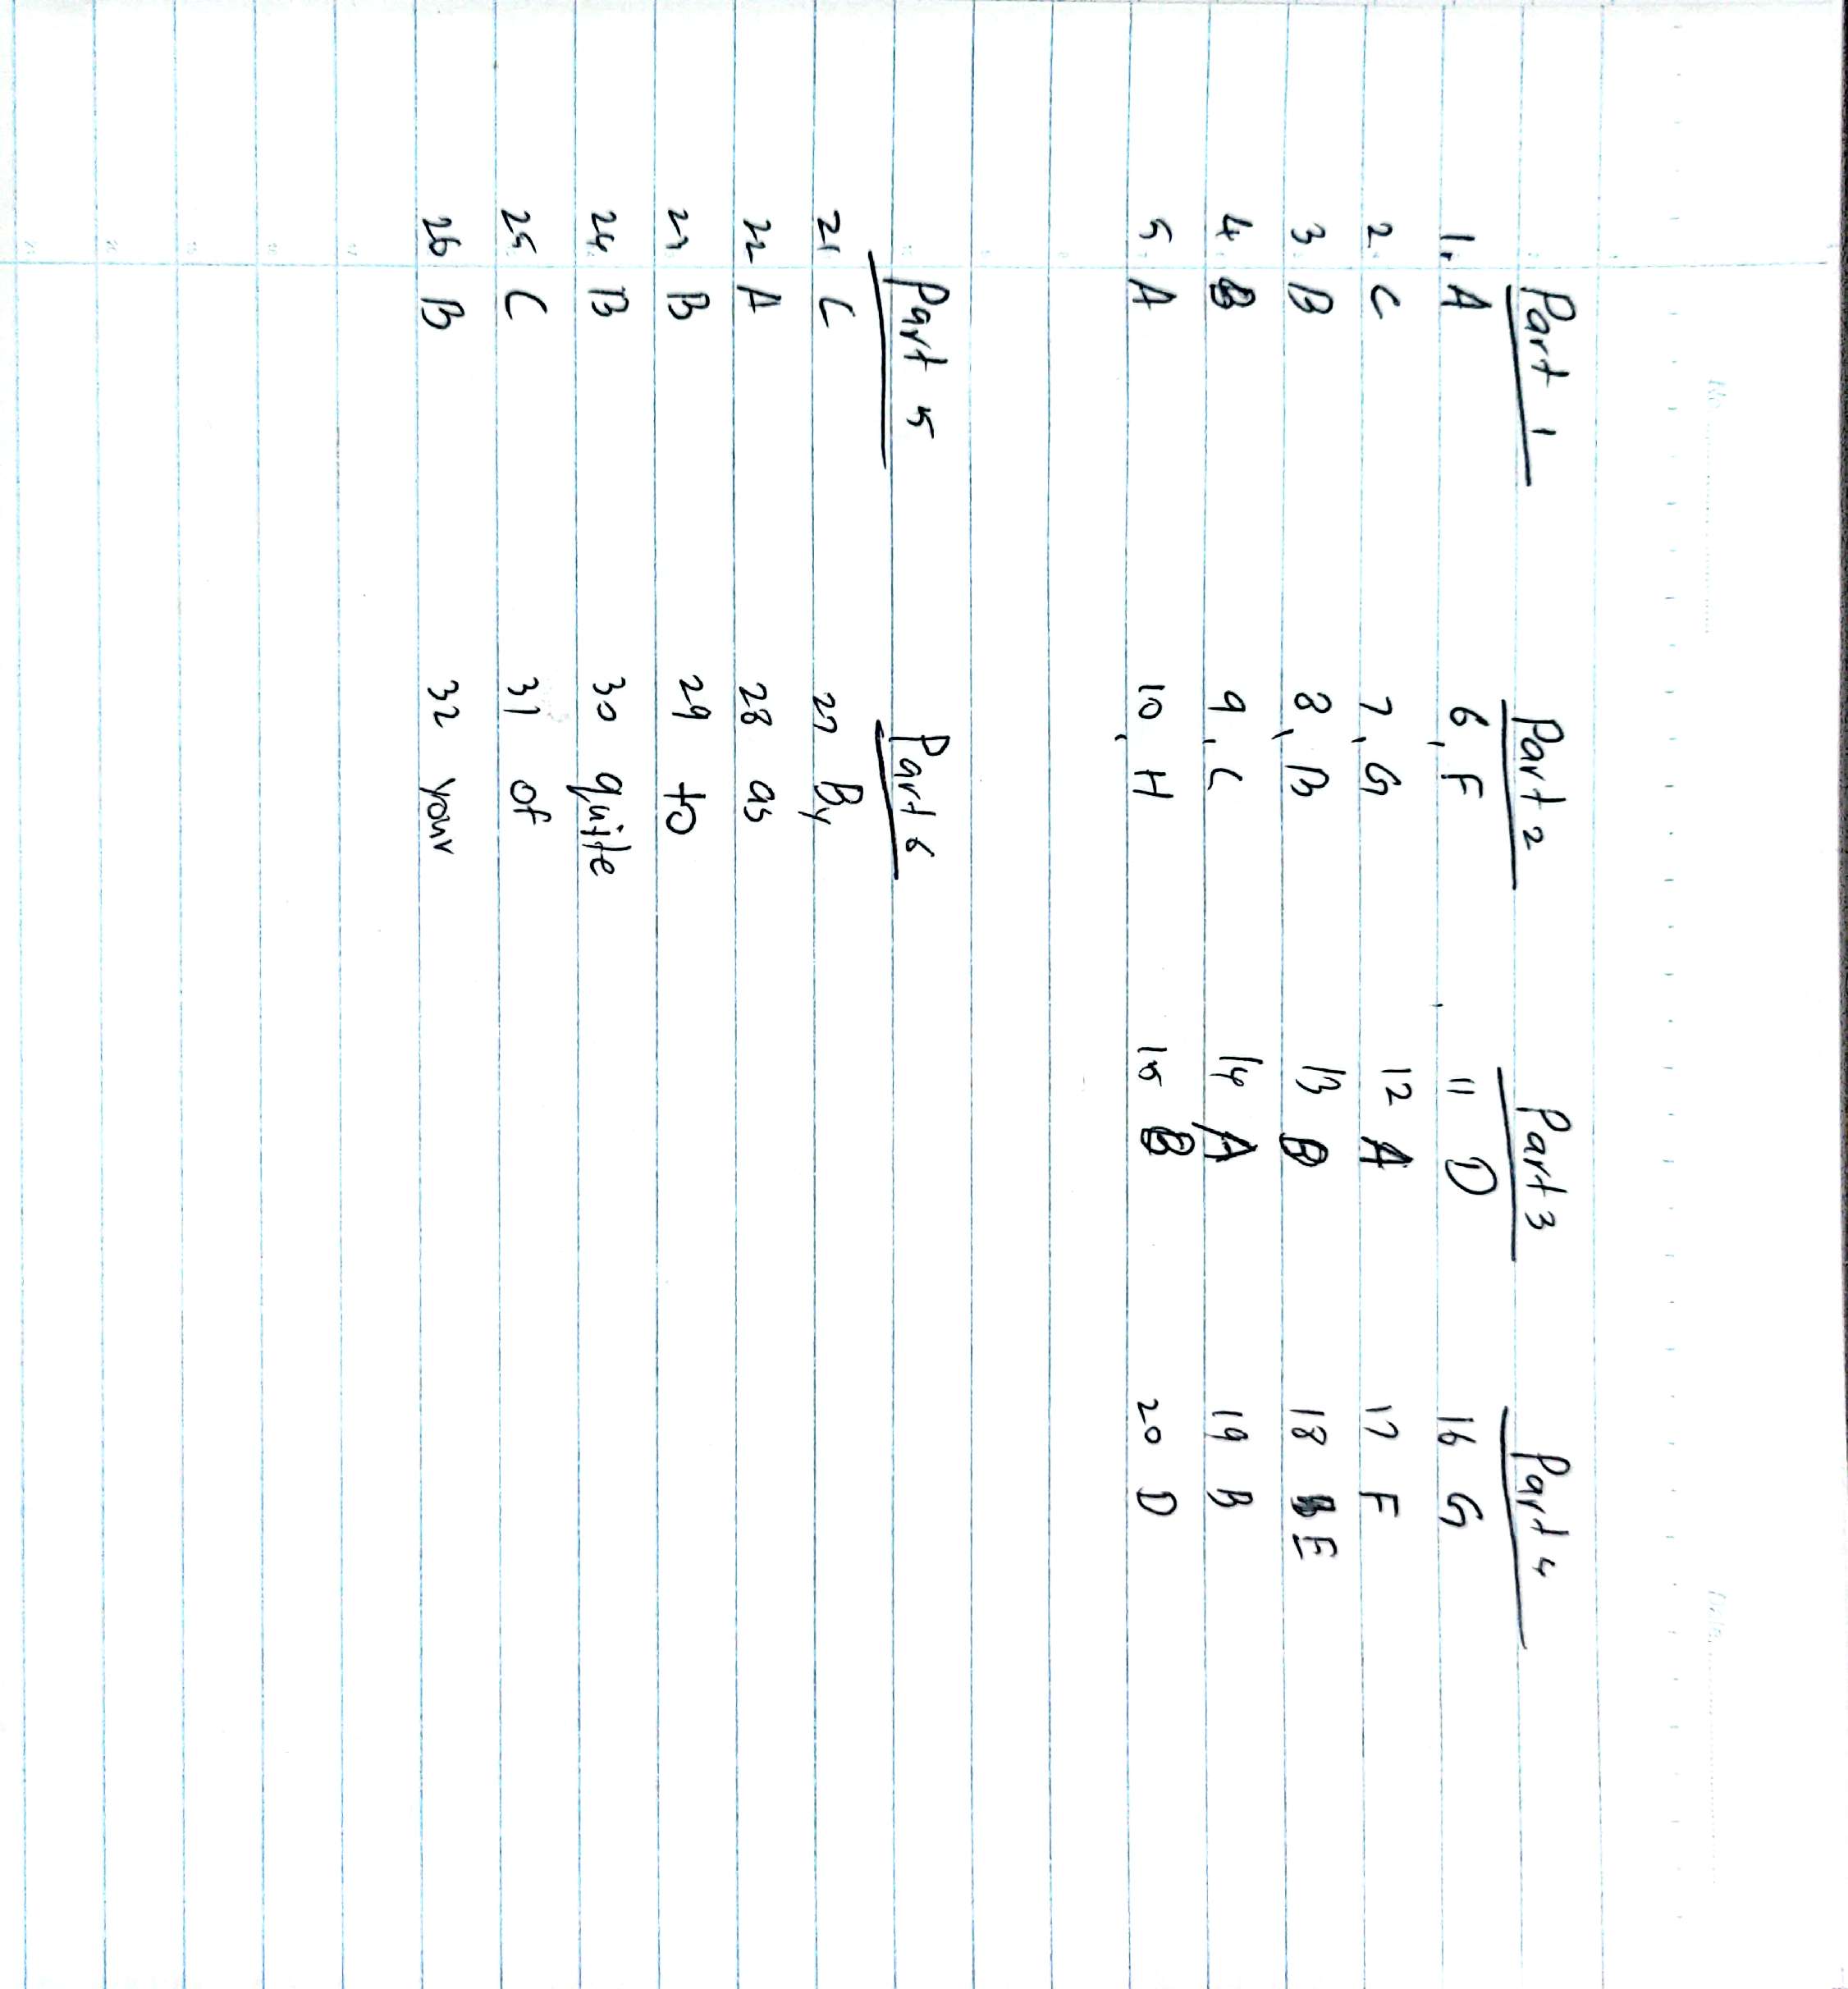 Part 1 Part 2 Part 3 Part 4
1. A 6, F 11 D 16 G
2. C 7, G 12 A 17 F
3. B 8, B 13 B 18 E
4. B 9, C 14 A 19 B
5. A 10, H 15 B 20 D
Part 5 Part 6
21 C 27 By
22 A 28 as
23 B 29 to
24 B 30 quite
25 C 31 of
26 B 32 your